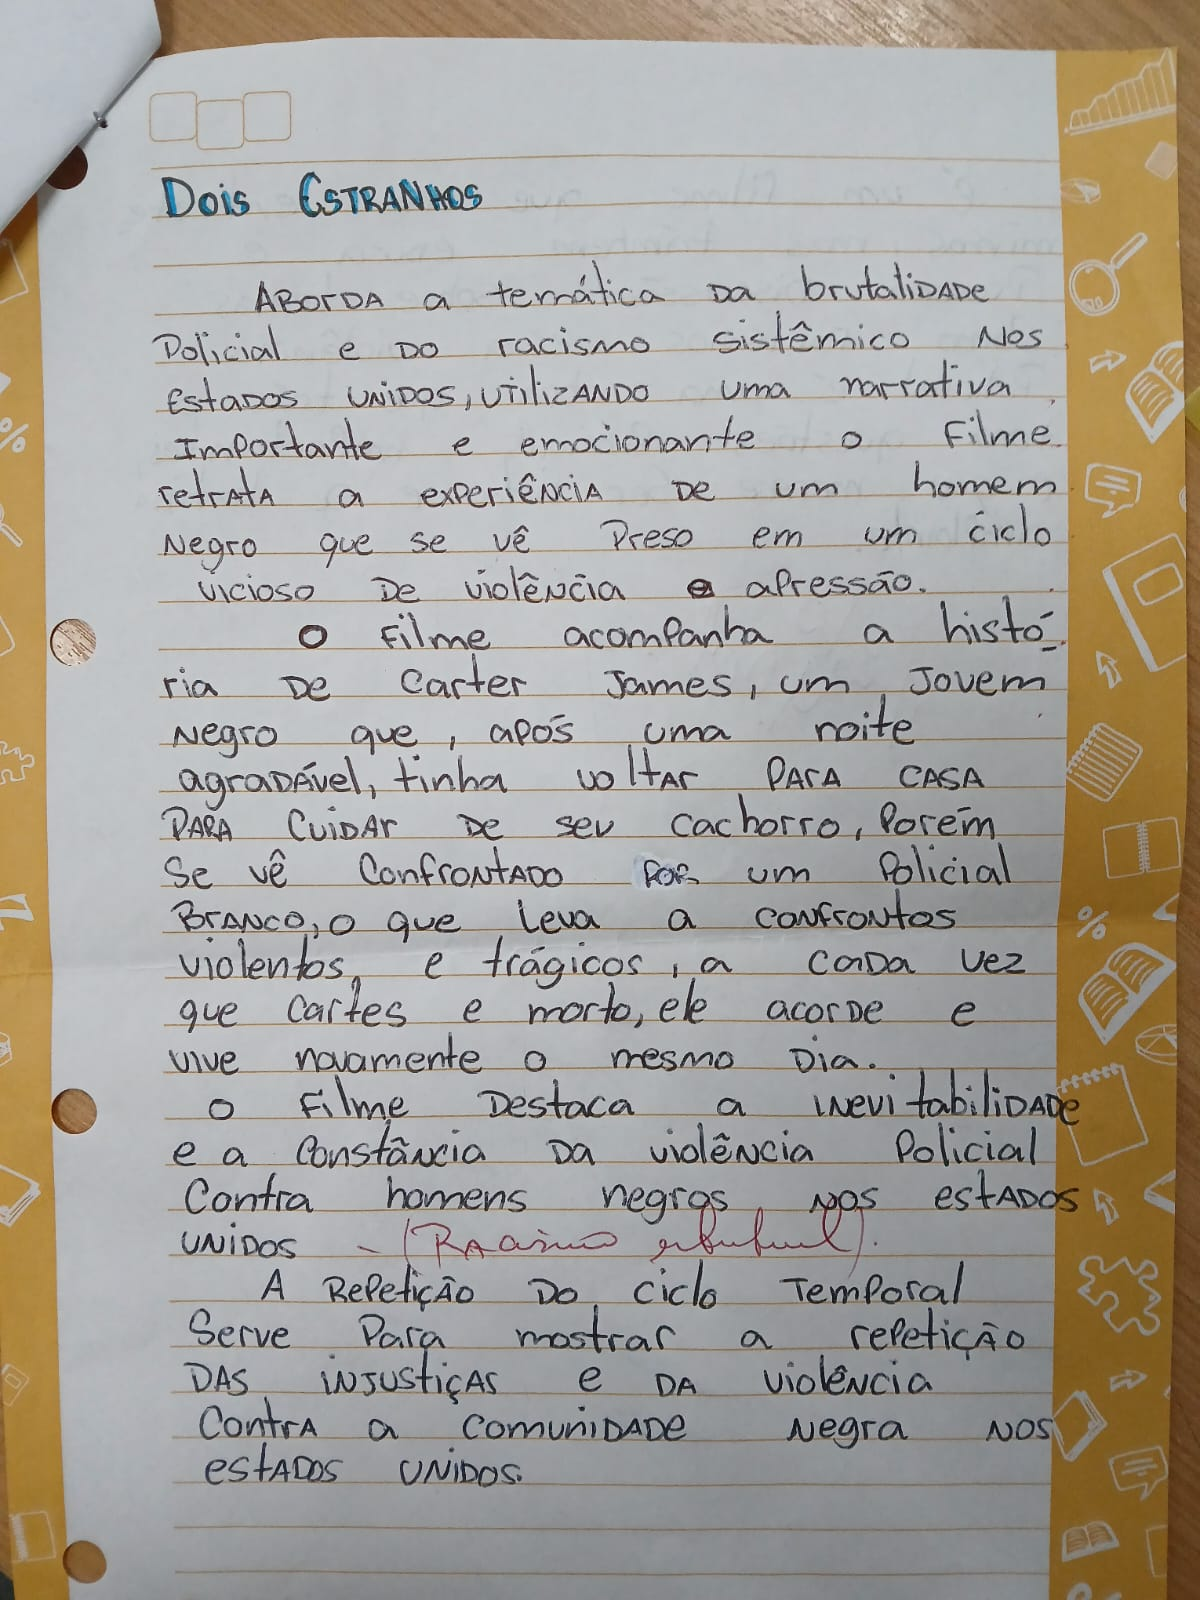 Dois Estranhos
Aborda a temática da brutalidade
Policial e do racismo sistêmico nos
Estados Unidos, utilizando uma narrativa
Importante e emocionante o filme
retrata a experiência de um homem
Negro que se vê preso em um ciclo
vicioso de violência e apressão.
O filme acompanha a histó
ria de Carter James, um jovem
Negro que, após uma noite
agradável, tinha voltar para casa
para cuidar de seu cachorro, porém
se vê confrontado por um policial
Branco, o que leva a confrontos
violentos, e trágicos, a cada vez
que Cartes e morto, ele acorde e
vive novamente o mesmo dia.
O filme destaca a inevitabilidade
e a constância da violência policial
contra homens negros nos estados
unidos - (Racismo estrutural).
A repetição do ciclo temporal
serve para mostrar a repetição
das injustiças e da violência
contra a comunidade negra nos
estados unidos.